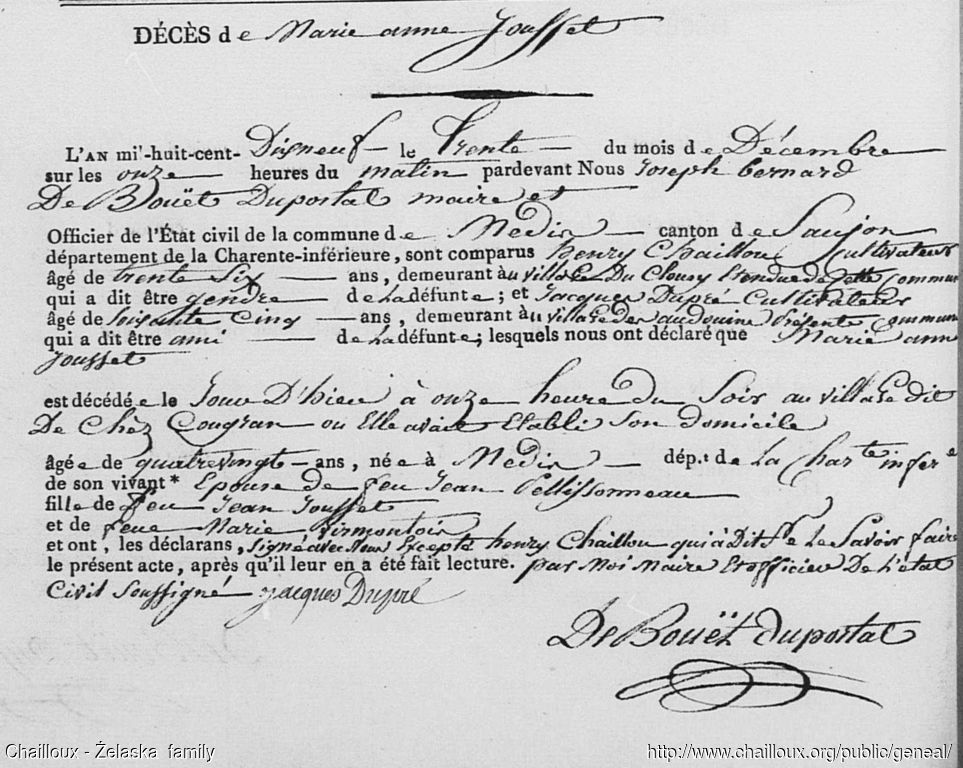 DÉCÈS de Marie anne Jousset
L'AN mil-huit-cent- Disneuf le Trente du mois de Décembre
sur les onze heures du matin pardevant Nous Joseph bernard
De Bouët Duportal maire et
Officier de l'État civil de la commune de Medis canton de Saujon
département de la Charente-inférieure, sont comparus henry Chaillou Cultivateur
âgé de trente Six ans, demeurant àu village Du Cloury Etendue de Cette Commune
qui a dit être gendre de La défunte; et Jacques Dupré Cultivateur
âgé de Soisante Cinq ans, demeurant àu village des audouins Présente Commune
qui a dit être ami de La défunte; lesquels nous ont déclaré que Marie anne
Jousset
est décédée le Jour D'hier à onze heure du Soir au village dit
De Chéz Cougran ou Elle avait Etabli Son domicile
âgée de quatrevingt ans, née à Medis dép.t de La Char.te infer.e
de son vivant * Epouse de feu Jean Pellissonneau
fille de feu Jean Jousset
et de feue Marie
et ont, les déclarans, signé avec Nous Excepté henry Chaillou qui à Dit Ne Le Savoir faire
le présent acte, après qu'il leur en a été fait lecture. par Moi Maire Et officier De L'état
Civil Soussigné Jacques Dupré
De Bouët duportal
Chailloux - Želaska family
http://www.chailloux.org/public/geneal/